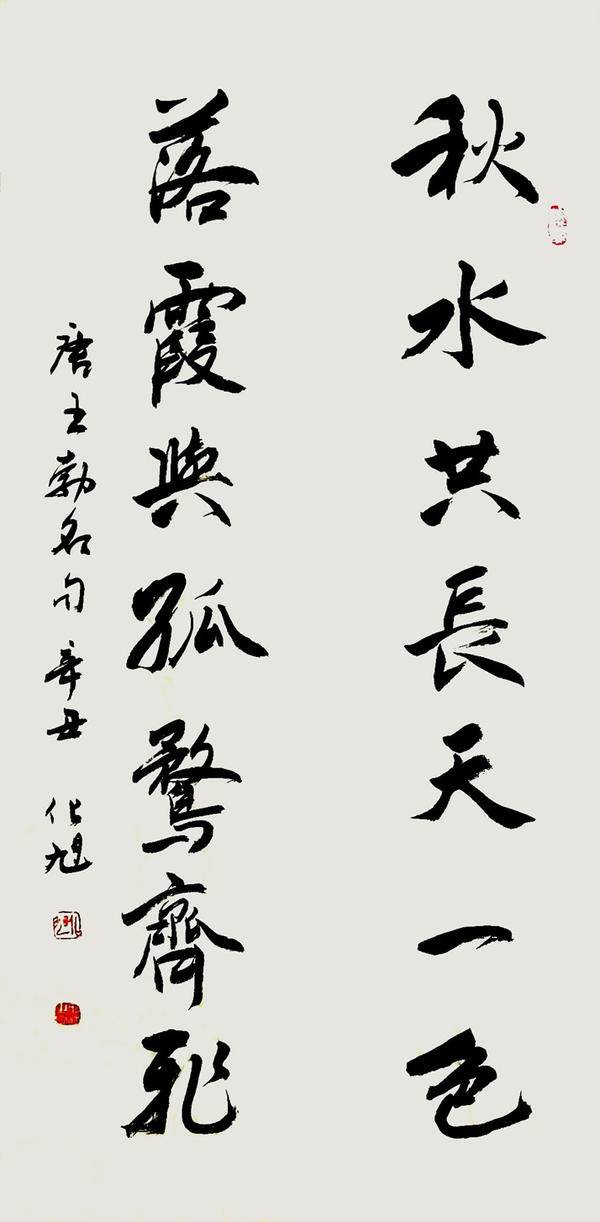 秋水共長天一色
落霞與孤鶩齊飛
唐王勃名句 辛丑 化旭